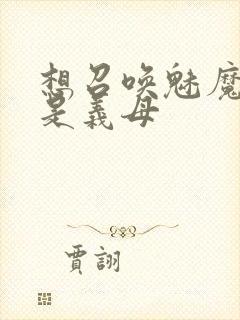 想召唤魅魔
是義母
賈詡